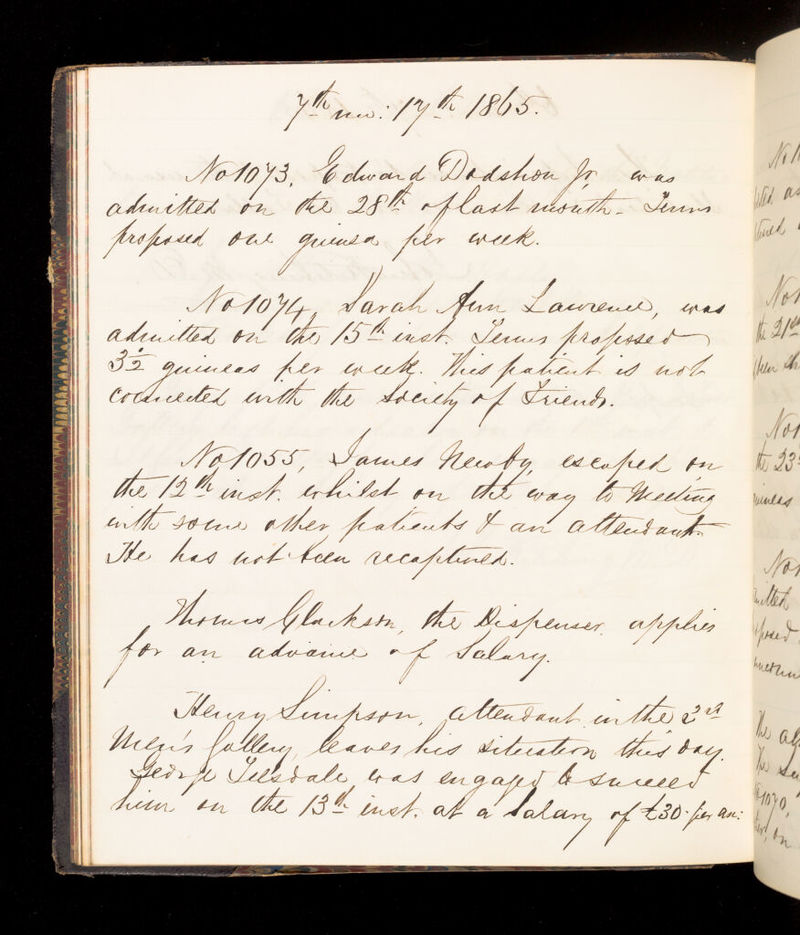 7th mo: 17th 1865.
No 1073, Edward Dodshon Jr was
admitted on the 28th of last month. Terms
proposed one guinea per week.
No 1074, Sarah Ann Lawrence, was
admitted on the 15th inst. Terms proposed
3 1/2 guineas per week. This patient is not
connected with the Society of Friends.
No 1055, James Newby, escaped on
the 12th inst. whilst on the way to Meeting
with some other patients & an attendant.
He has not been recaptured.
Thomas Clarkson, the Dispenser applies
for an advance of Salary.
Henry Simpson, attendant in the 2nd
Men's Gallery leaves his situation this day.
George Teesdale was engaged to succeed
him on the 13th inst. at a Salary of £30 per an:
No
the 21st
No
the 23
guineas
No
The
1070,
on